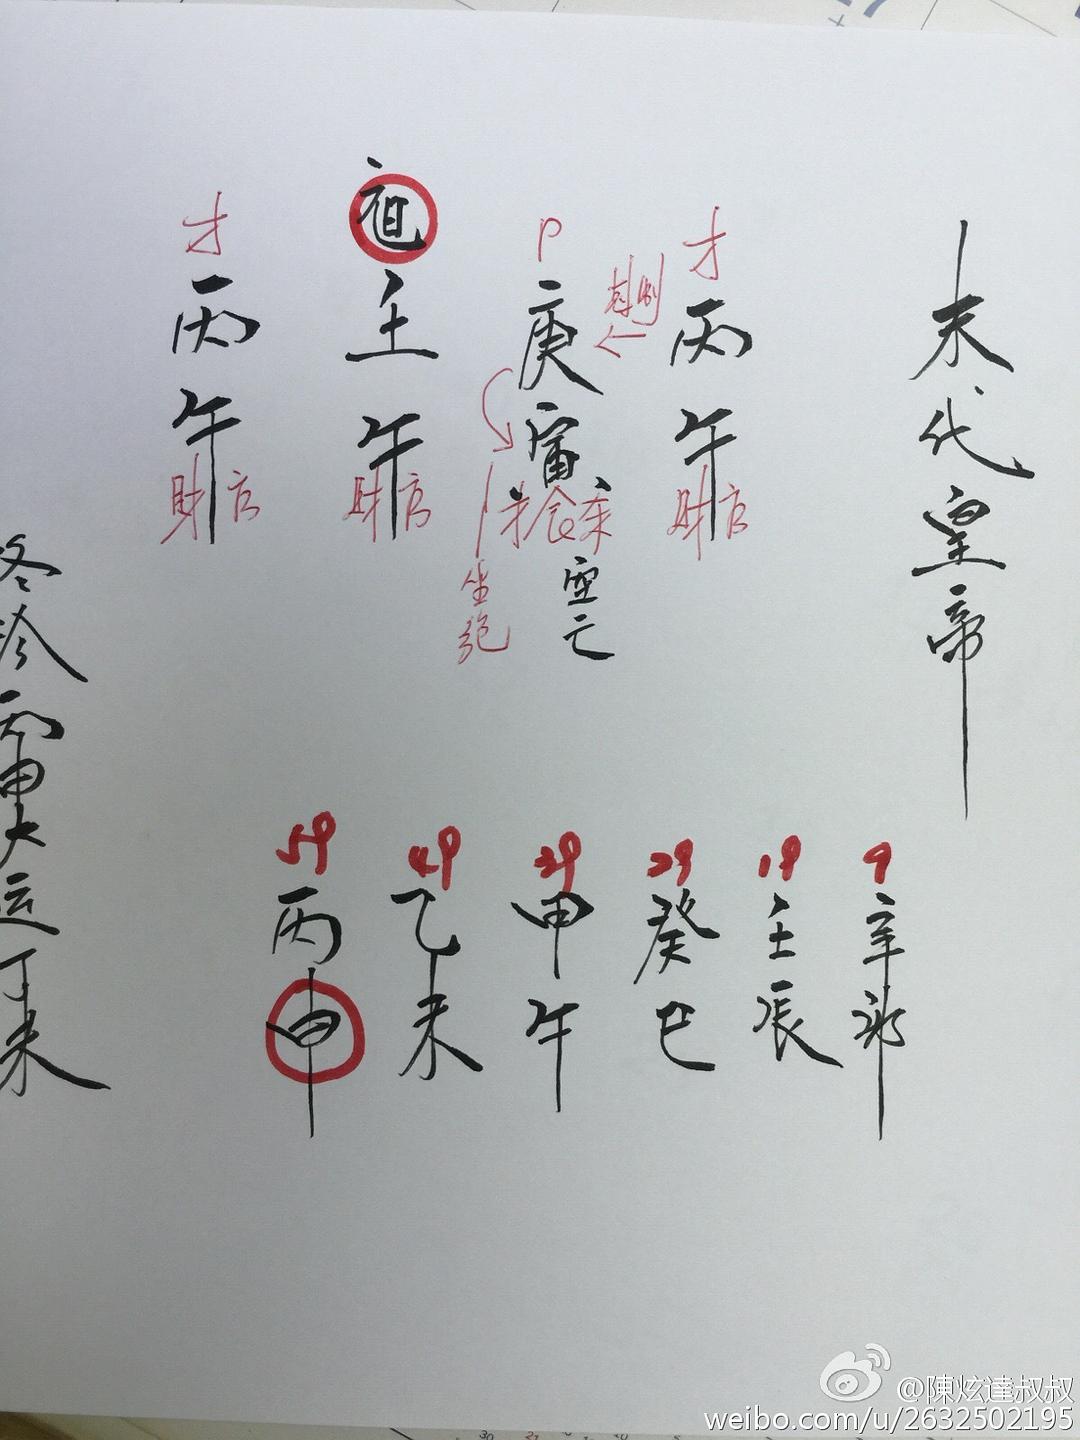 末代皇帝
才
丙午
財官
剋制
P
庚寅
食
空亡
坐絕
壬午
財官
才
丙午
財官
9
辛卯
19
壬辰
29
癸巳
39
甲午
49
乙未
59
丙申
丙申大运丁未
@陳炫達叔叔
weibo.com/u/2632502195